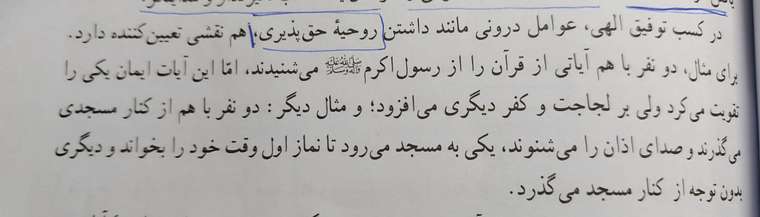 در کسب توفیق الهی، عوامل درونی مانند داشتن روحیهٔ حق‌پذیری، هم نقشی تعیین‌کننده دارد.
برای مثال، دو نفر با هم آیاتی از قرآن را از رسول اکرم ﷺ می‌شنیدند، امّا این آیات ایمان یکی را
تقویت می‌کرد ولی بر لجاجت و کفر دیگری می‌افزود؛ و مثال دیگر: دو نفر با هم از کنار مسجدی
می‌گذرند و صدای اذان را می‌شنوند، یکی به مسجد می‌رود تا نماز اول وقت خود را بخواند و دیگری
بدون توجه از کنار مسجد می‌گذرد.